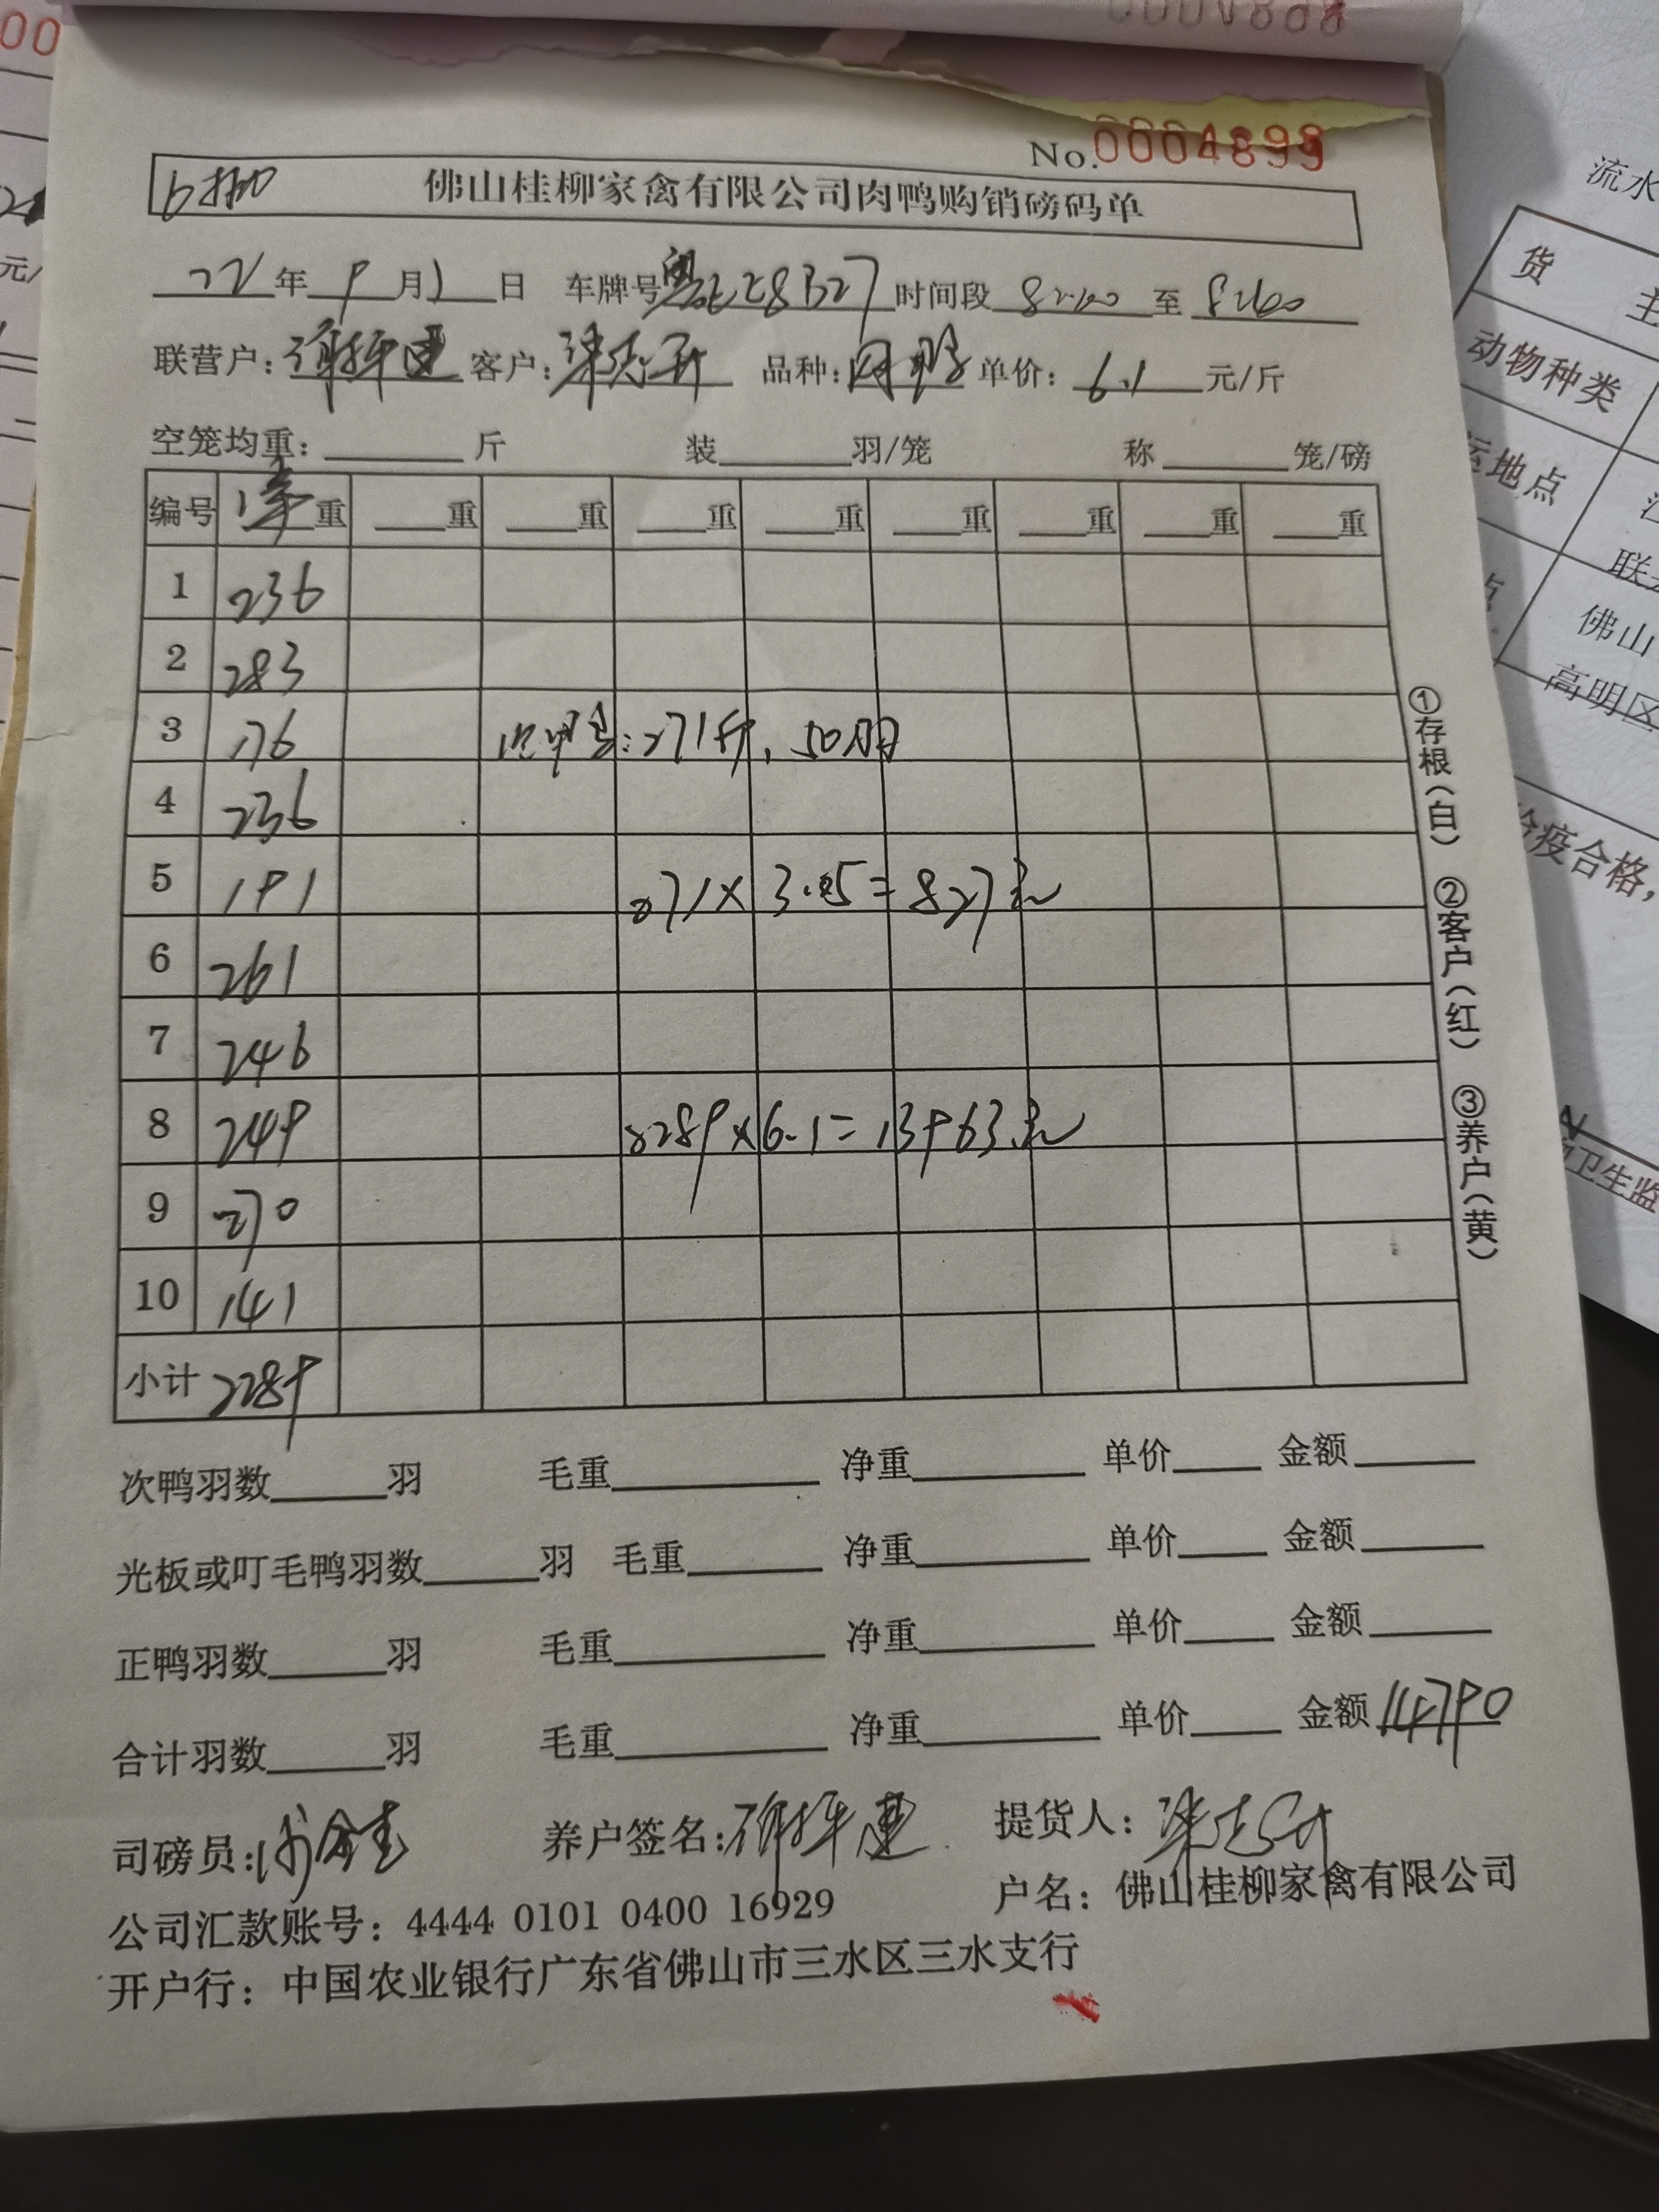 No.0004899
佛山桂柳家禽有限公司肉鸭购销磅码单
22年9月1日 车牌号粤E28B27 时间段 至
联营户: 客户:梁志升 品种:肉鸭 单价:6.1元/斤
空笼均重:斤 装羽/笼 称笼/磅
编号 净重 重 重 重 重 重 重 重 重
1 236
2 283
3 176 次鸭重:271斤,50羽
4 236
5 191 271×3.05=827元
6 261
7 246
8 249 2289×6.1=13963元
9 270
10 141
小计 2289
①存根(白) ②客户(红) ③养户(黄)
次鸭羽数羽 毛重 净重 单价 金额
光板或叮毛鸭羽数羽 毛重 净重 单价 金额
正鸭羽数羽 毛重 净重 单价 金额
合计羽数羽 毛重 净重 单价 金额14790
司磅员: 养户签名: 提货人:梁志升
公司汇款账号:4444 0101 0400 16929 户名:佛山桂柳家禽有限公司
开户行:中国农业银行广东省佛山市三水区三水支行
流水
货主
动物种类
运地点
佛山
高明区
检疫合格,
卫生监